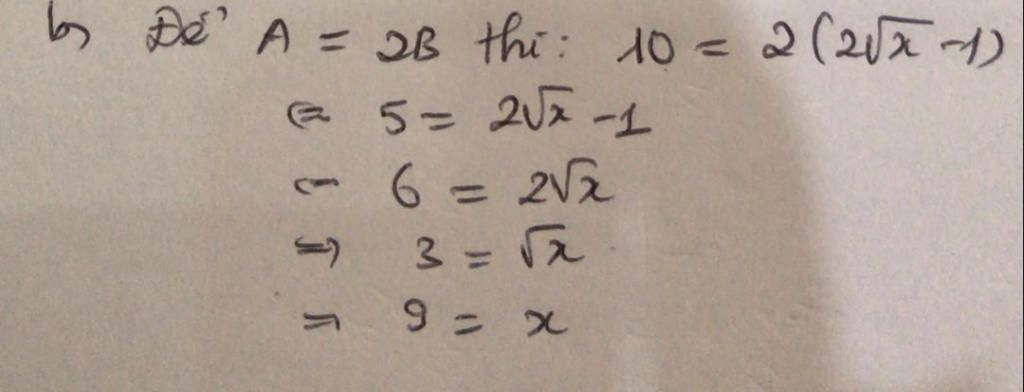 b) Để A = 2B thì: 10 = 2(2√x -1)
⇔ 5 = 2√x -1
⇔ 6 = 2√x
⇒ 3 = √x
⇒ 9 = x